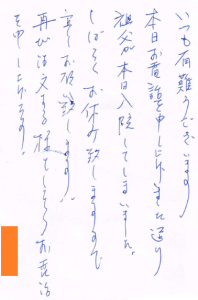 いつも有難うございます。
本日お電話で申し上げました通り
祖父が本日入院してしまいました。
しばらくお休み致しますので
宜しくお願い致します。
再び注文する様でしたらお電話
を申し上げます。